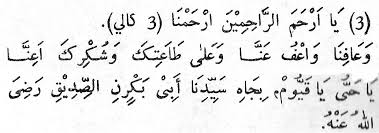 (3) يَا اَرْحَمَ الرَّاحِمِيْنَ اِرْحَمْنَا (3 كالي).
وَعَافِنَا وَاعْفُ عَنَّا وَعَلٰى طَاعَتِكَ وَشُكْرِكَ اَعِنَّا
يَا حَيُّ يَا قَيُّوْمُ، بِجَاهِ سَيِّدِنَا أَبِيْ بَكْرِنِ الصِّدِّيْقِ رَضِيَ
اللهُ عَنْهُ.